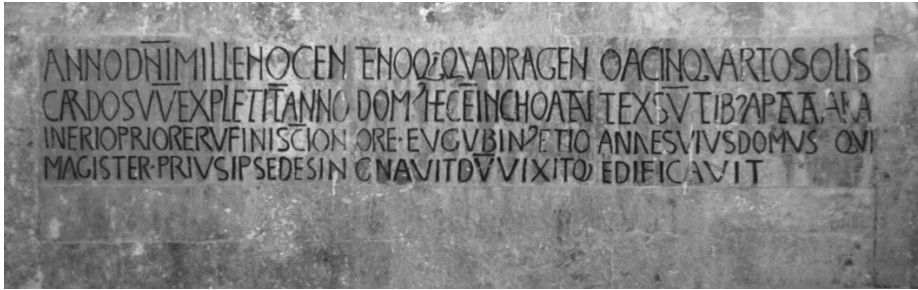 ANNO DN̄I MILLENO CENTENOQ; QVADRAGENO AC IN QVARTO SOLIS
CARDO SVV̄ EXPLET IT̄ ANNO DOM' HEC Ē INCHOATA EX SV̄TIB' APTATA A RA
INERIO PRIORE RVFINI SC̄I ONORE · EVGVBIN' ET IOANNES VIVS DOMVS QVI
MAGISTER · PRIVS IPSE DESINGNAVIT DV̄ VIXIT Q EDIFICAVIT